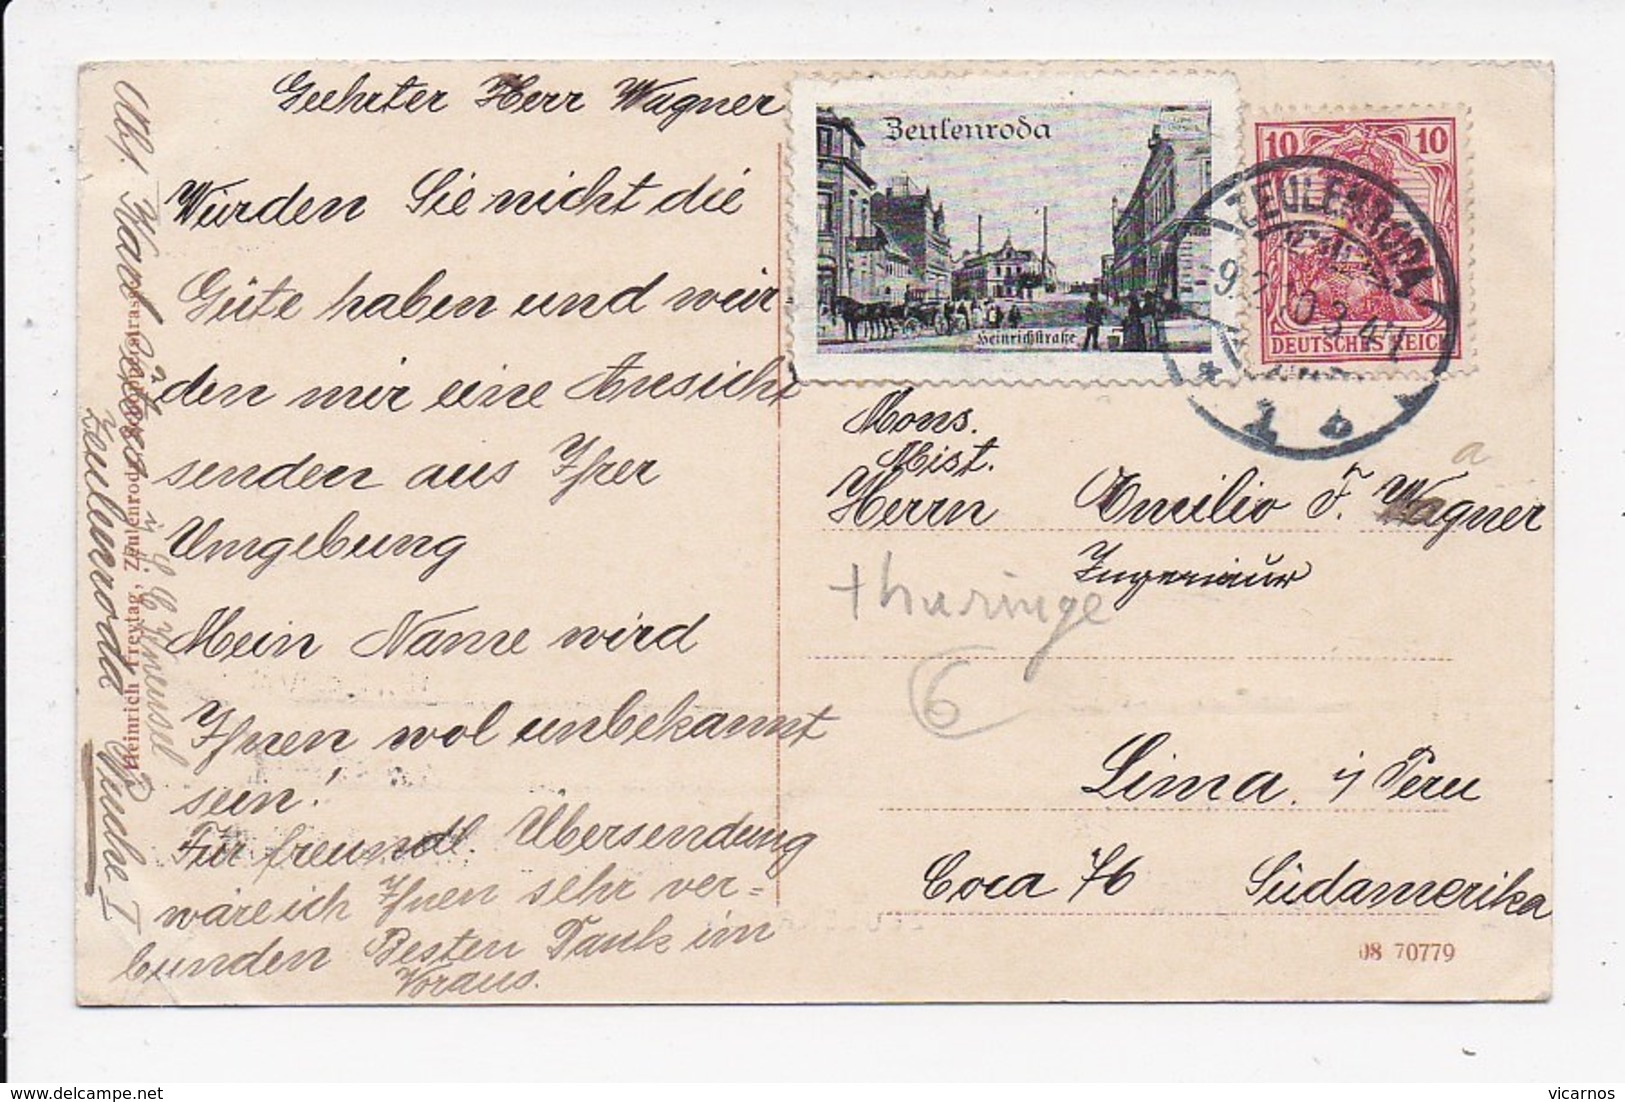 Geehrter Herr Wagner
Würden Sie nicht die
Güte haben und wür
den mir eine Ansicht
senden aus Ihrer
Umgebung
Mein Name wird
Ihnen wol unbekannt
sein!
Für freundl. Übersendung
wäre ich Ihnen sehr ver=
bunden Besten Dank im
Voraus.
Abs. Karl
Zeulenroda
Heinrich Freytag, Zeulenroda
Zeulenroda
Heinrichstraße
10 10
DEUTSCHES REICH
ZEULENRODA
Mons.
Mist.
Herrn Emilio F. Wagner
a
Ingenieur
thuringe
6
Lima. i/ Peru
Coca 76 Südamerika
08 70779
delcampe.net
vicarnos